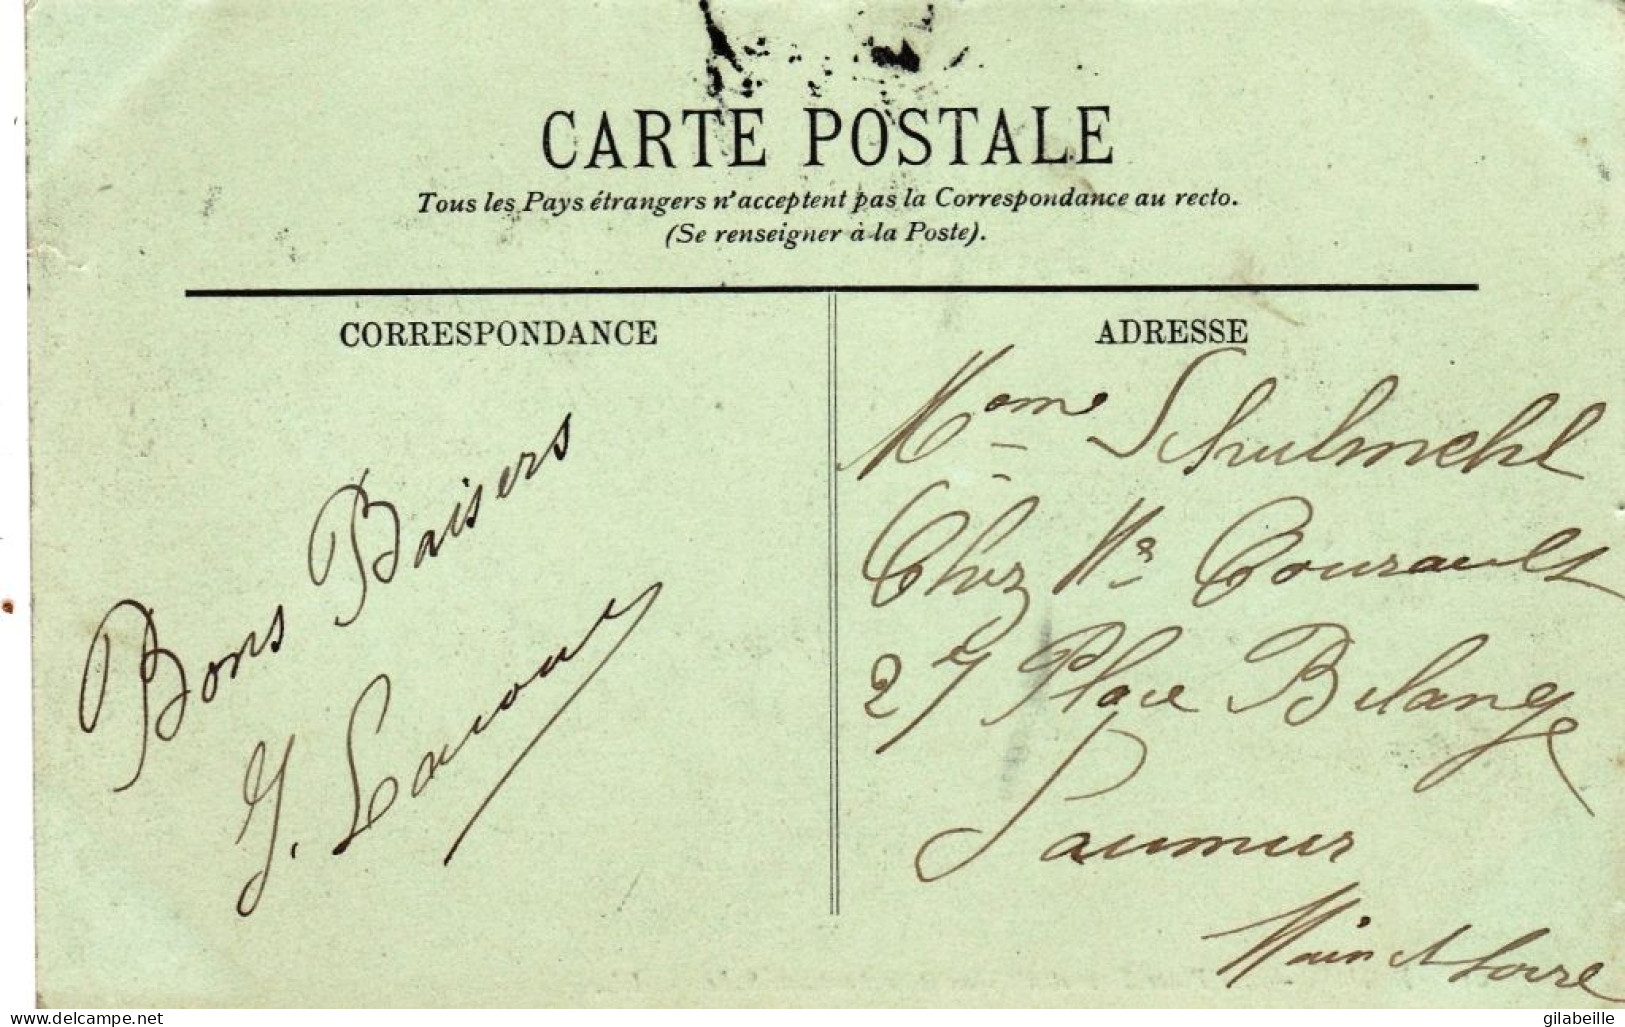 CARTE POSTALE
Tous les Pays étrangers n'acceptent pas la Correspondance au recto.
(Se renseigner à la Poste).
CORRESPONDANCE
Bons Baisers
J.
ADRESSE
Mome Schulmehl
Chez Mr Courault
27 Place Belange
Saumur
Main et Loire
delcampe.net
gilabeille